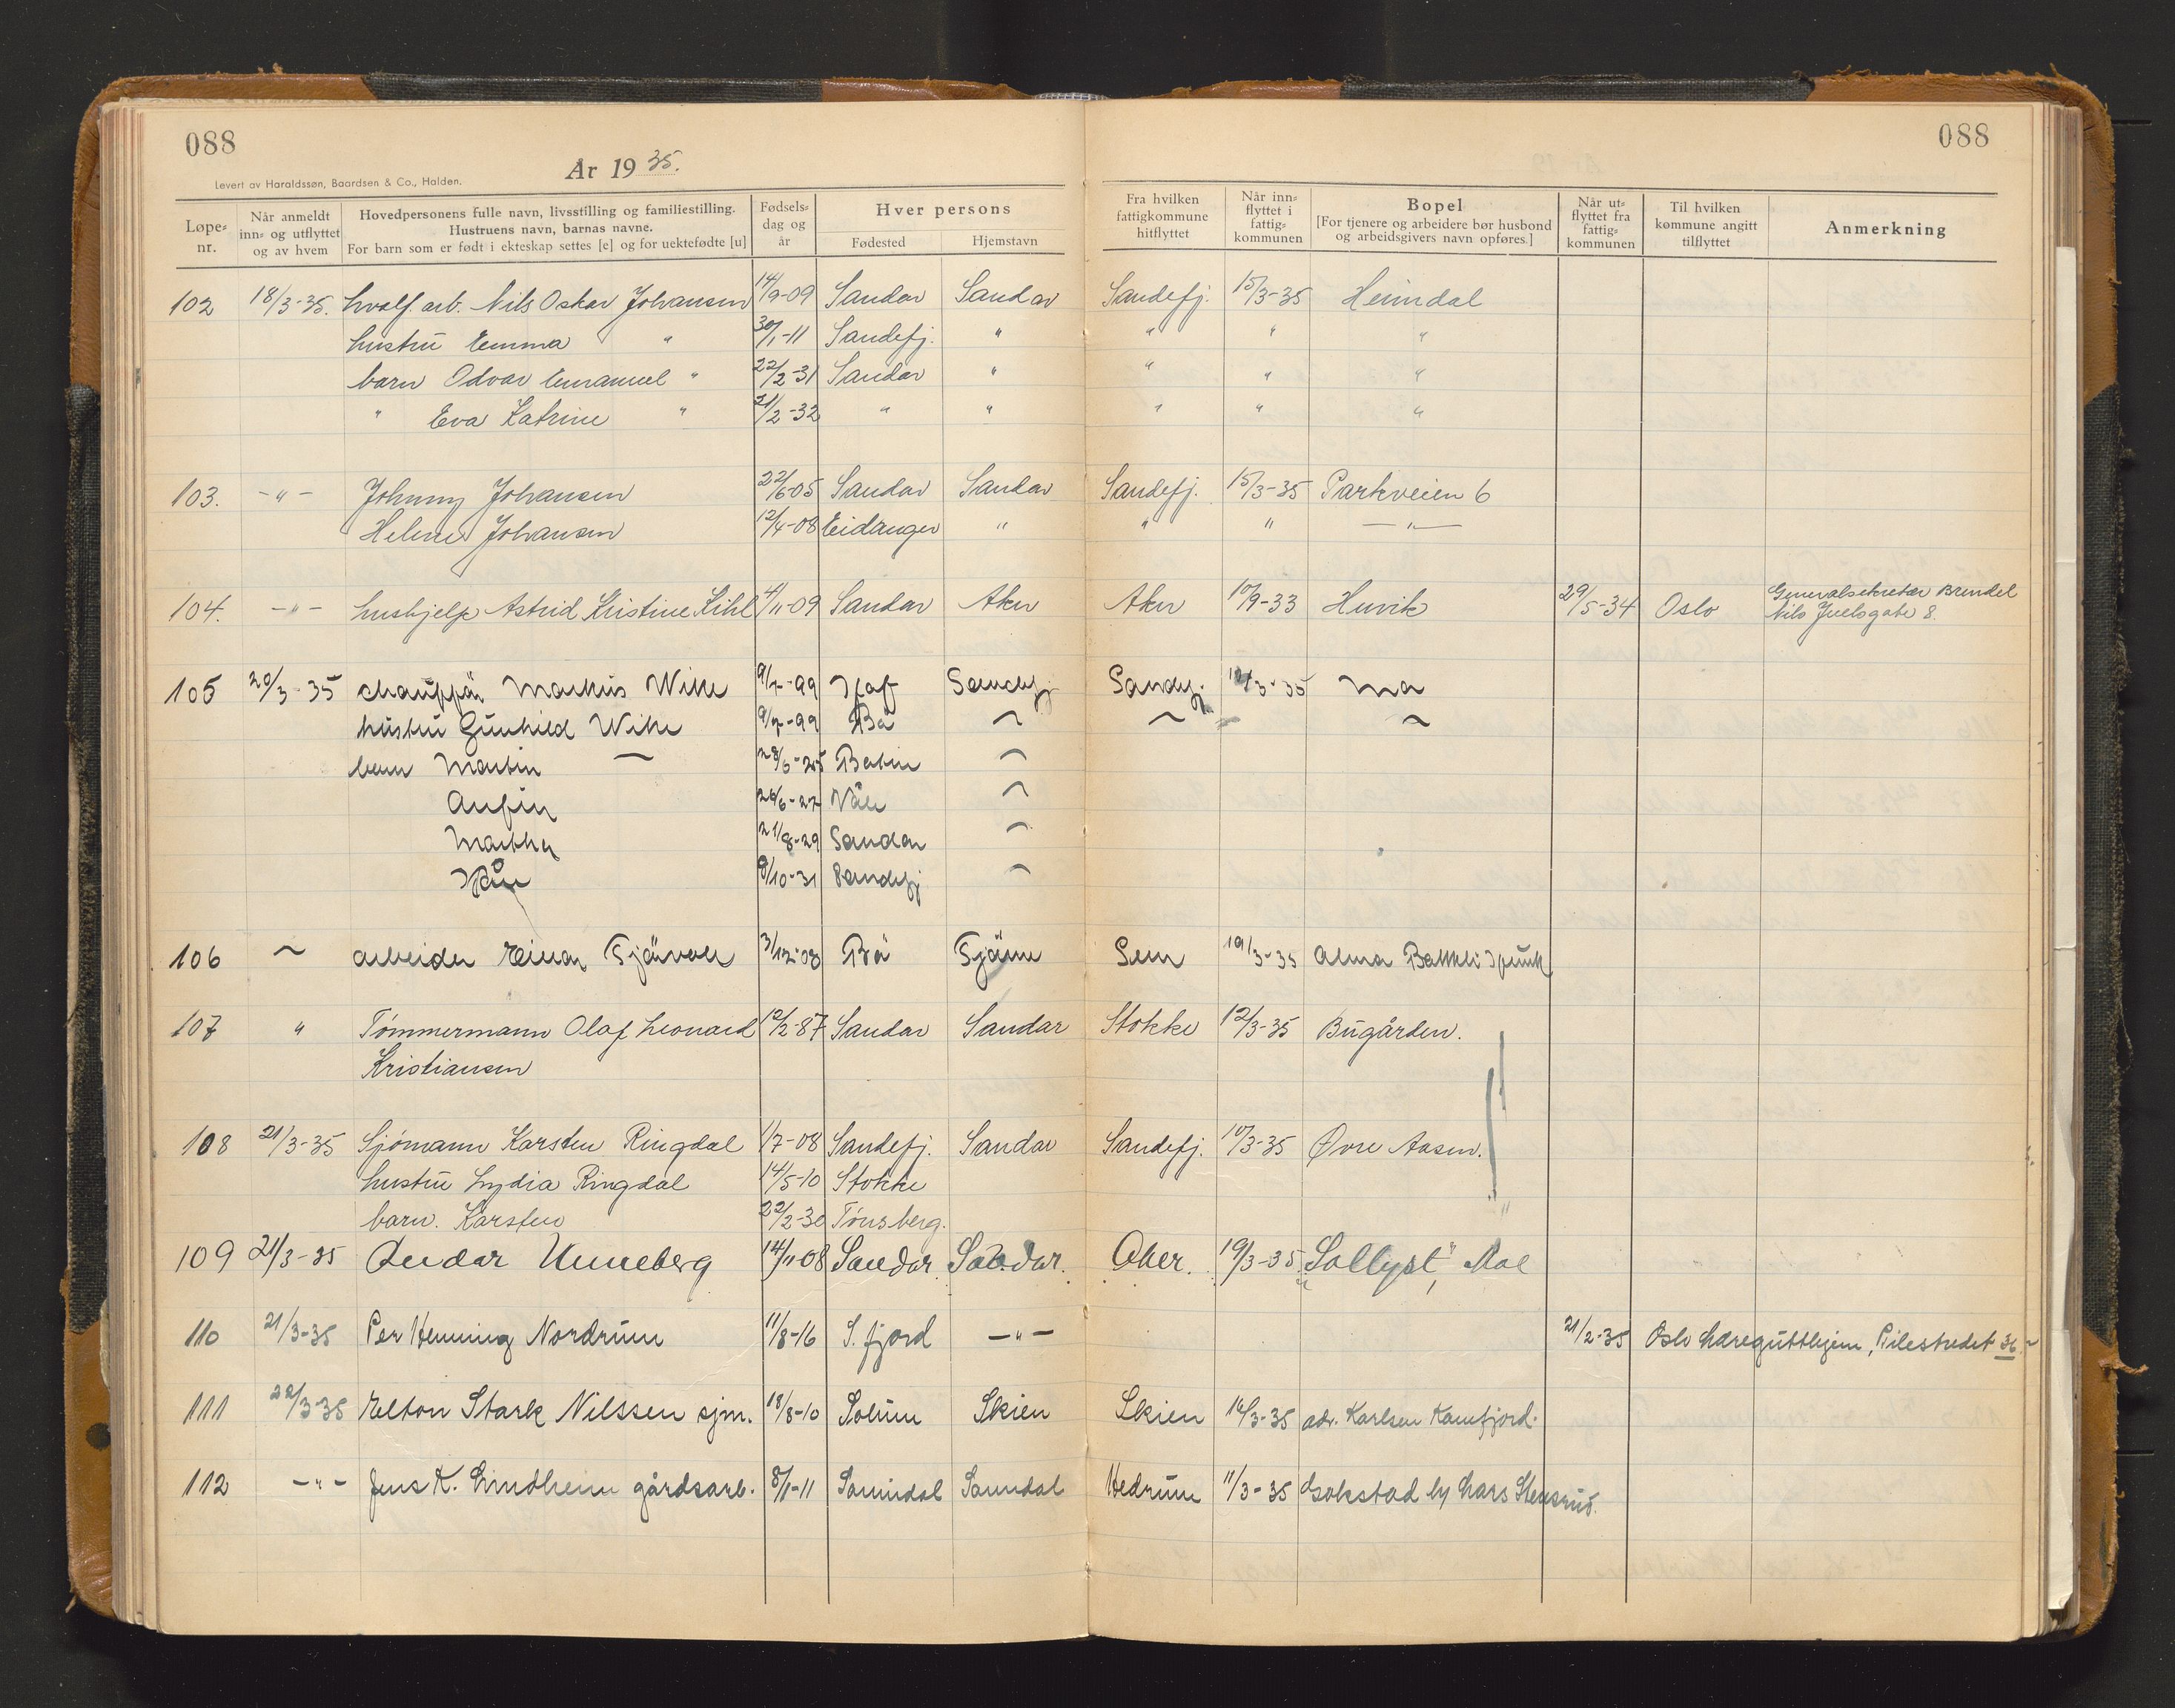 088
088
År 1935.
Levert av Haraldssøn, Baardsen & Co., Halden.
Løpe-nr. | Når anmeldt inn- og utflyttet og av hvem | Hovedpersonens fulle navn, livsstilling og familiestilling. Hustruens navn, barnas navne. For barn som er født i ekteskap settes [e] og for uektefødte [u] | Fødsels-dag og år | Hver persons Fødested | Hjemstavn | Fra hvilken fattigkommune hitflyttet | Når inn-flyttet i fattig-kommunen | Bopel [For tjenere og arbeidere bør husbond og arbeidsgivers navn opføres.] | Når ut-flyttet fra fattig-kommunen | Til hvilken kommune angitt tilflyttet | Anmerkning
102 18/3-35. hvalf. arb. Nils Oskar Johansen 14/9-09 Sandar Sandar Sandefj. 15/3-35 Heimdal
hustru Emma " 30/1-11 Sandefj. " " " "
barn Odvar Emanuel " 22/2-31 Sandar " " " "
" Eva Katrine " 21/2-32 " " " " "
103. -"- Johnny Johansen 22/6-05 Sandar Sandar Sandefj. 15/3-35 Parkveien 6
Helene Johansen 12/4-08 Eidanger " " " -"-
104. -"- hushjelp Astrid Kristine Kihl 4/11-09 Sandar Aker Aker 10/9-33 Huvik 29/5-34 Oslo Generalsekretær Brendel
Nils Juelsgate 8.
105 20/3-35 chauffør Markus Wike 9/7-99 Sandefj. Sandefj. 3-35
hustru Gunhild Wike 9/7-99 Bø
barn Martin 25
27 Våle
Martha 21/8-29 Sandar
8/10-31 Sandefj
106 ~ arbeider Einar 3/12-08 Bø Tjøme Sem 19/3-35 Alma
107 " Tømmermann Olaf Leonard 12/2-87 Sandar Sandar Stokke 12/3-35 Bugården.
Kristiansen
108 21/3-35 Sjømann Karsten Ringdal 1/7-08 Sandefj. Sandar Sandefj. 10/3-35 Øvre Aasen.
hustru Lydia Ringdal 14/5-10 Stokke
barn. Karsten 22/2-30 Tønsberg.
109 21/3-35 Reidar Unneberg 14/11-08 Sandar Sandar. Aker. 19/3-35 "Sollyst" Moe
110 21/3-35 Per Henning Nordrum 11/8-16 S.fjord -"- 21/2-35 Oslo Læregutthjem, Pilestredet 36.
111 22/3-35 Elton Stark Nilssen sjm. 18/8-10 Solum Skien Skien 14/3-35 adr. Karlsen Kamfjord.
112 -"- Jens K. Lindheim gårdsarb. 8/1-11 Sannidal Sannidal Hedrum 11/3-35 Gokstad by Lars Stensrud.